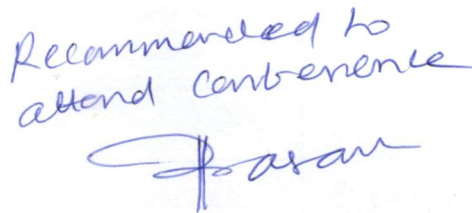 Recommended to
attend conference